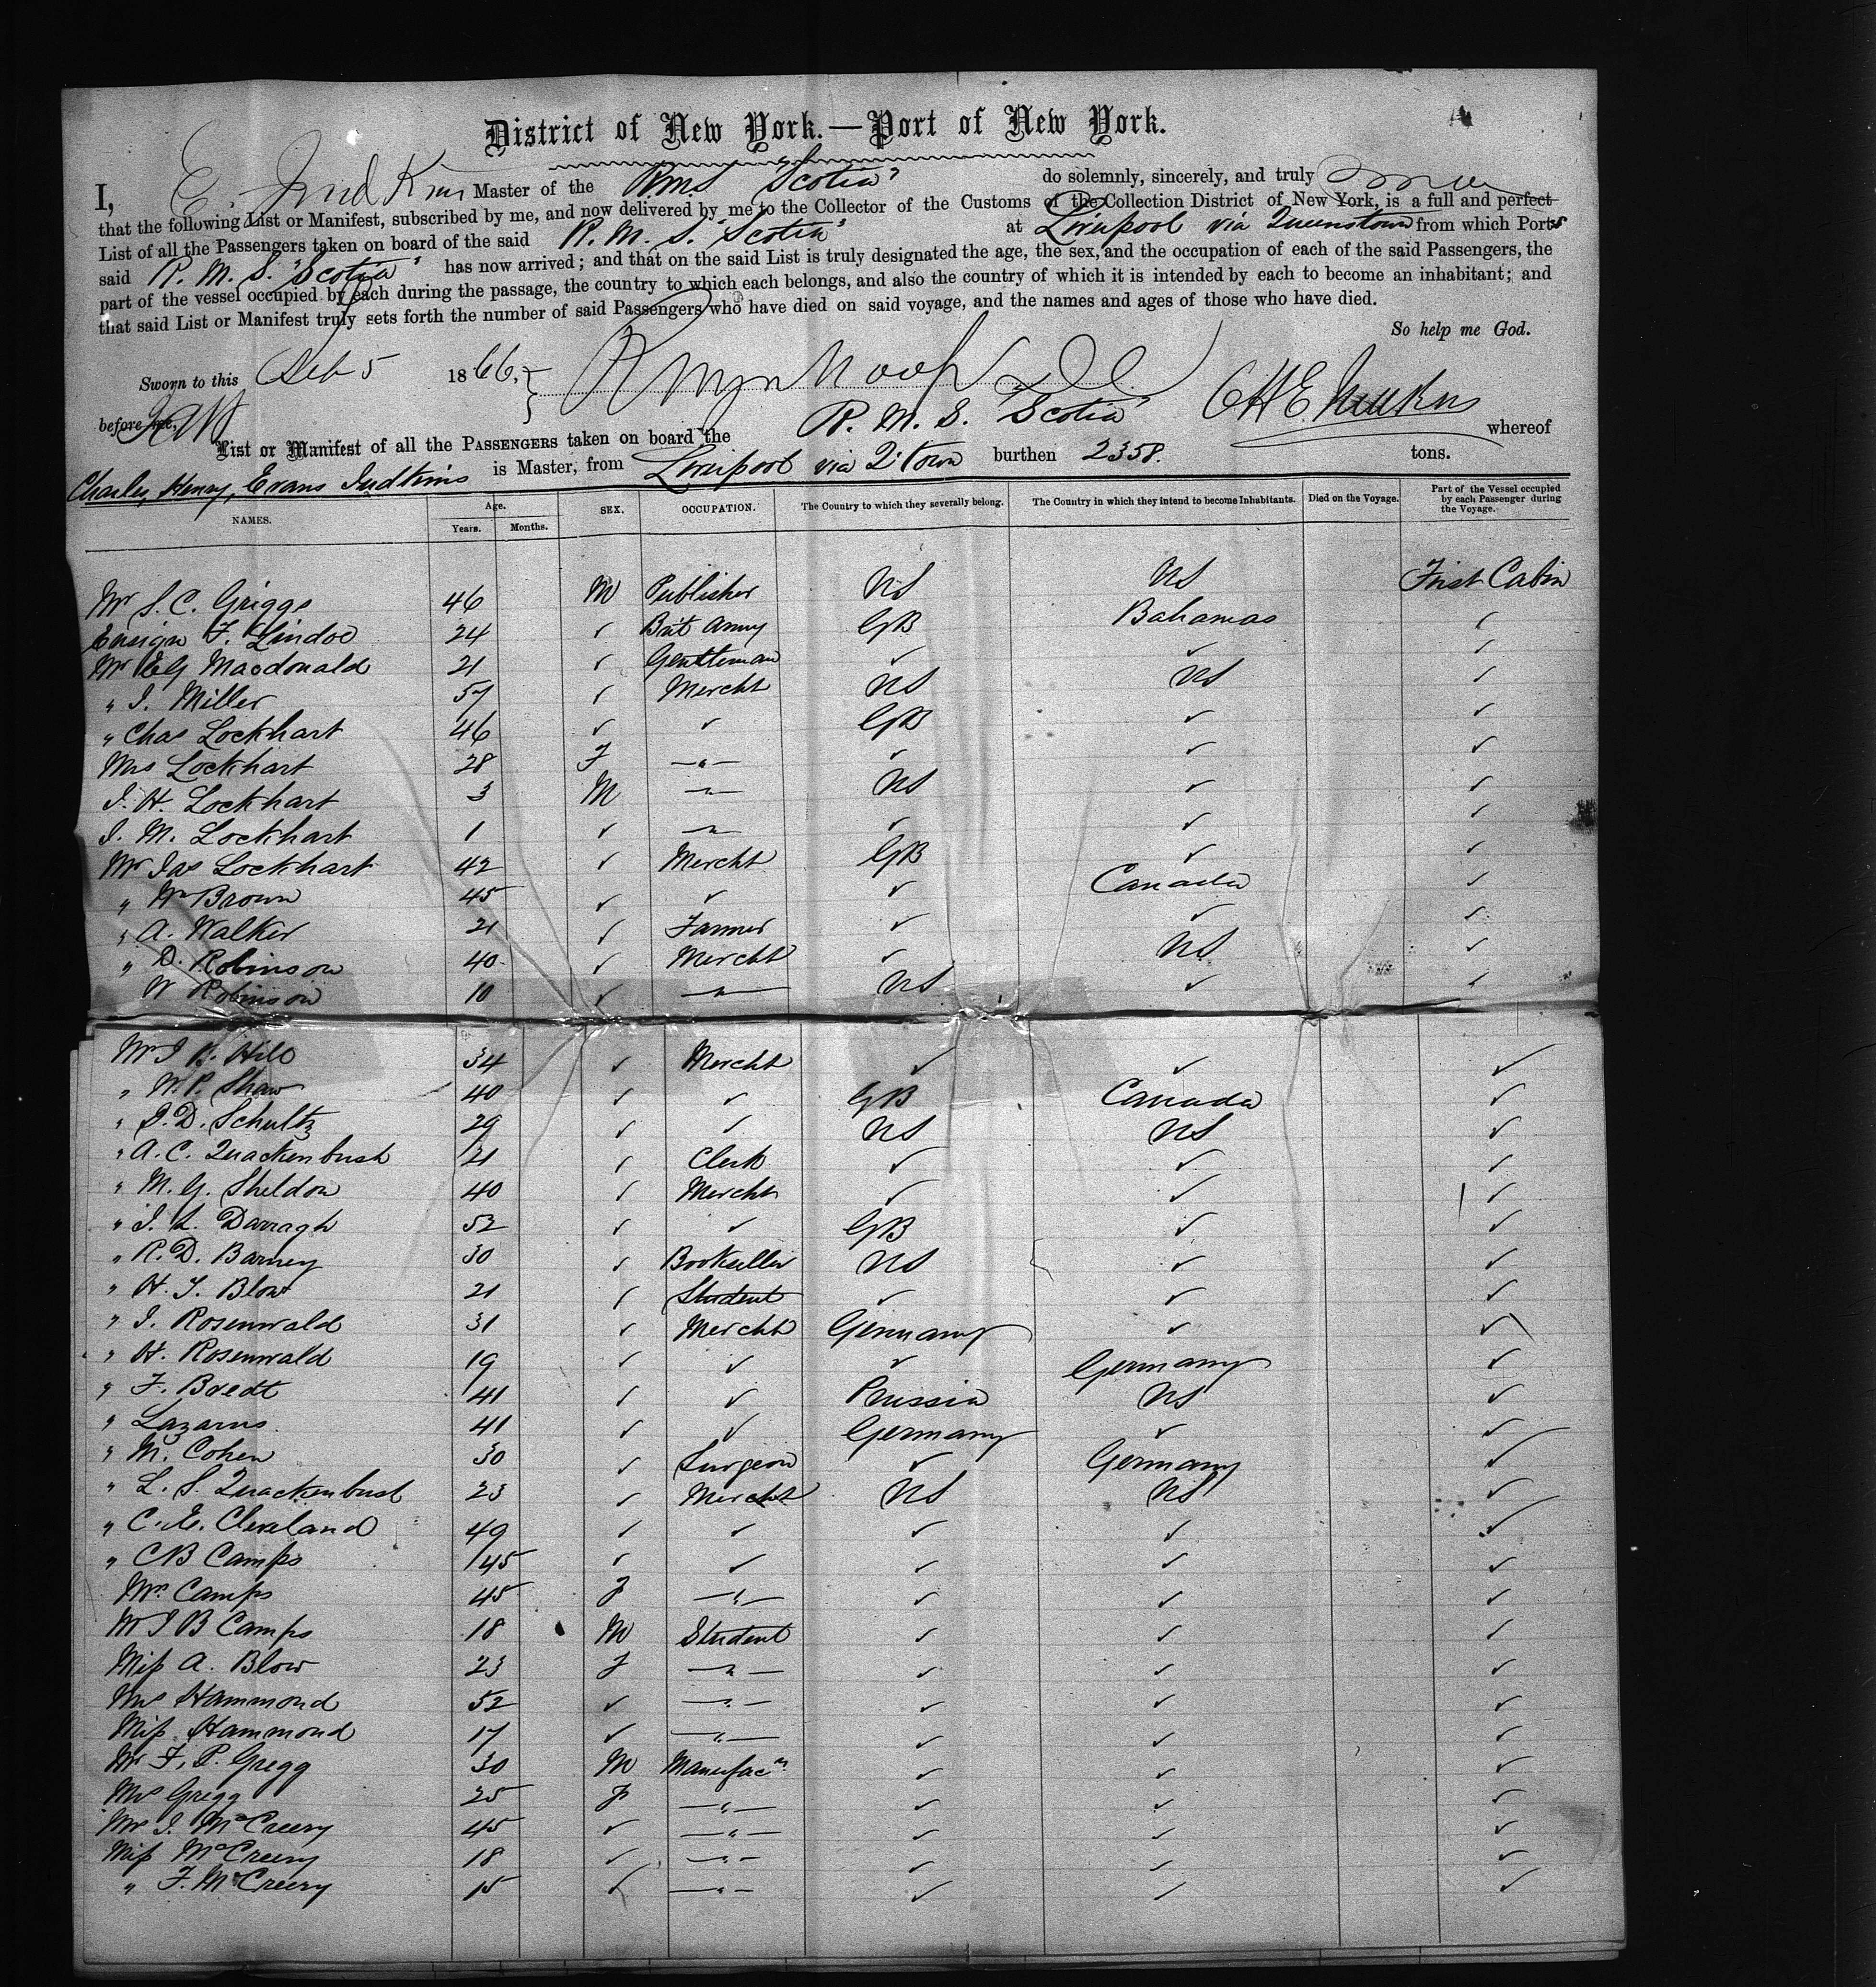 District of New York.—Port of New York.
I, Master of the RMS "Scotia" do solemnly, sincerely, and truly
that the following List or Manifest, subscribed by me, and now delivered by me to the Collector of the Customs of the Collection District of New York, is a full and perfect
List of all the Passengers taken on board of the said R. M. S. "Scotia" at Liverpool via Queenstown from which Ports
said R. M. S. "Scotia" has now arrived; and that on the said List is truly designated the age, the sex, and the occupation of each of the said Passengers, the
part of the vessel occupied by each during the passage, the country to which each belongs, and also the country of which it is intended by each to become an inhabitant; and
that said List or Manifest truly sets forth the number of said Passengers who have died on said voyage, and the names and ages of those who have died.
So help me God.
Sworn to this 5 1866,
before me,
List or Manifest of all the PASSENGERS taken on board the R. M. S. "Scotia" whereof
Charles, Henry, Evans Judkins is Master, from Liverpool via Q. Town burthen 2358. tons.
NAMES. Age. Years. Months. SEX. OCCUPATION. The Country to which they severally belong. The Country in which they intend to become Inhabitants. Died on the Voyage. Part of the Vessel occupied by each Passenger during the Voyage.
Mr S. C. Griggs 46 M Publisher US US First Cabin
Ensign F. Lindoe 24 ✓ Brit Army GB Bahamas ✓
Mr EG Macdonald 21 ✓ Gentleman ✓ ✓ ✓
" J. Miller 57 ✓ Mercht US US ✓
" Chas Lockhart 46 ✓ ✓ GB ✓ ✓
Mrs Lockhart 28 F —"— ✓ ✓ ✓
J. H. Lockhart 3 M —"— US ✓ ✓
J. M. Lockhart 1 ✓ —"— ✓ ✓ ✓
Mr Jas Lockhart 42 ✓ Mercht GB ✓ ✓
" Wm Brown 45 ✓ ✓ ✓ Canada ✓
" A. Walker 21 ✓ Farmer ✓ ✓ ✓
" D. Robinson 40 ✓ Mercht ✓ US ✓
W Robinson 10 ✓ —"— US ✓ ✓
Mr J B. Hill 34 ✓ Mercht ✓ ✓ ✓
" W. P. Shaw 40 ✓ ✓ GB Canada ✓
" J. D. Schultz 29 ✓ ✓ US US ✓
" A. C. Quackenbush 21 ✓ Clerk ✓ ✓ ✓
" M. G. Sheldon 40 ✓ Mercht ✓ ✓ ✓
" J. L. Darragh 52 ✓ ✓ GB ✓ ✓
" R. D. Barney 30 ✓ Bookseller US ✓ ✓
" H. T. Blow 21 ✓ Student ✓ ✓ ✓
" J. Rosenwald 31 ✓ Mercht Germany ✓ ✓
" H. Rosenwald 19 ✓ ✓ ✓ Germany ✓
" F. Bredt 41 ✓ ✓ Prussia US ✓
" Lazarus 41 ✓ ✓ Germany ✓ ✓
" M. Cohen 30 ✓ Surgeon ✓ Germany ✓
" L. S. Quackenbush 23 ✓ Mercht US US ✓
" C. E. Cleveland 49 ✓ ✓ ✓ ✓ ✓
" CB Camps 45 ✓ ✓ ✓ ✓ ✓
Mrs Camps 45 F —"— ✓ ✓ ✓
Mr J B Camps 18 M Student ✓ ✓ ✓
Miss A. Blow 23 F —"— ✓ ✓ ✓
Mrs Hammond 52 ✓ —"— ✓ ✓ ✓
Miss Hammond 17 ✓ —"— ✓ ✓ ✓
Mr F. P. Gregg 30 M Manufacr ✓ ✓ ✓
Mrs Gregg 25 F —"— ✓ ✓ ✓
Mrs J. McCreery 45 ✓ —"— ✓ ✓ ✓
Miss McCreery 18 ✓ —"— ✓ ✓ ✓
" F. McCreery 15 ✓ —"— ✓ ✓ ✓